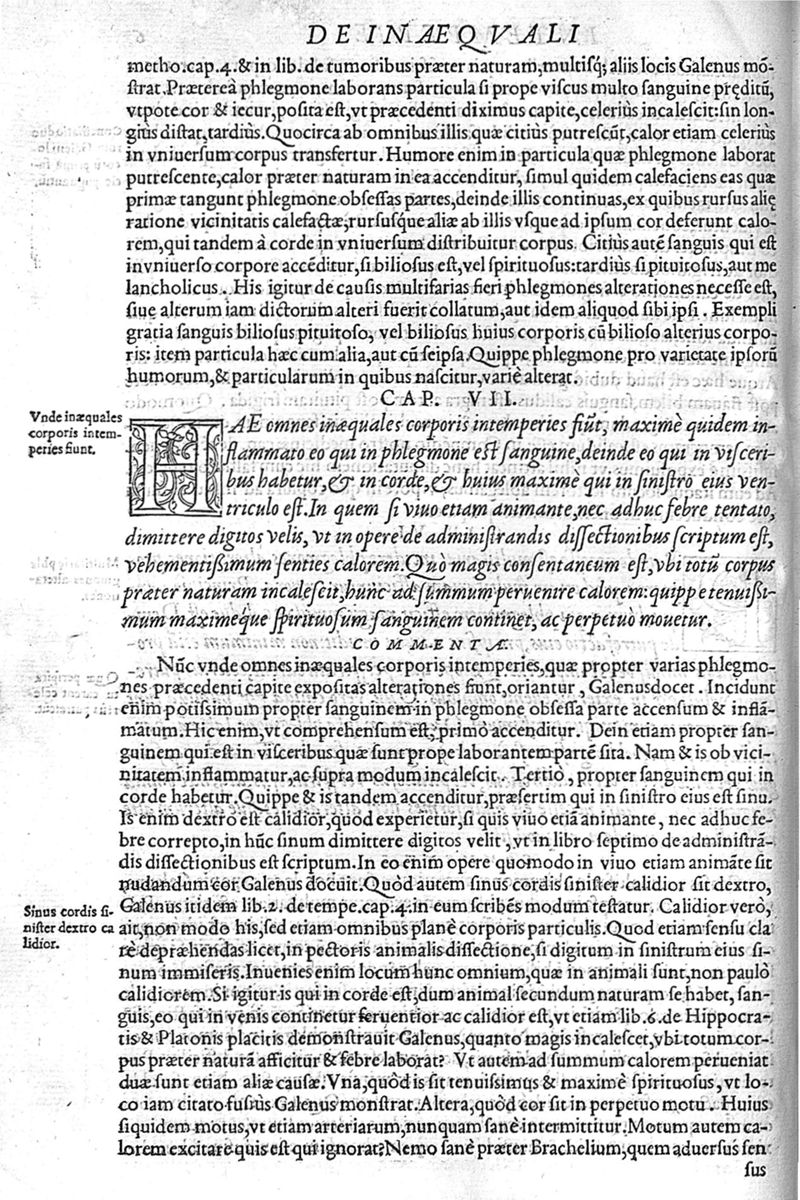 DE INÆQVALI
metho.cap.4.& in lib. de tumoribus præter naturam,multisq; aliis locis Galenus mō-
strat.Prætereà phlegmone laborans particula si prope viscus multo sanguine pręditū,
vtpote cor & iecur,posita est,vt præcedenti diximus capite,celeriùs incalescit:sin lon-
giùs distat,tardiùs.Quocirca ab omnibus illis quæ citiùs putrescūt,calor etiam celeriùs
in vniuersum corpus transfertur. Humore enim in particula quæ phlegmone laborat
putrescente,calor præter naturam in ea accenditur, simul quidem calefaciens eas quæ
primæ tangunt phlegmone obsessas partes,deinde illis continuas,ex quibus rursus alię
ratione vicinitatis calefactæ,rursusque aliæ ab illis vsque ad ipsum cor deferunt calo-
rem,qui tandem à corde in vniuersum distribuitur corpus. Citiùs autē sanguis qui est
in vniuerso corpore accēditur,si biliosus est,vel spirituosus:tardiùs si pituitosus,aut me
lancholicus . His igitur de causis multifarias fieri phlegmones alterationes necesse est,
siue alterum iam dictorum alteri fuerit collatum,aut idem aliquod sibi ipsi . Exempli
gratia sanguis biliosus pituitoso, vel biliosus huius corporis cū bilioso alterius corpo-
ris: item particula hæc cum alia,aut cū seipsa.Quippe phlegmone pro varietate ipsorū
humorum,& particularum in quibus nascitur,variè alterat.
CAP. VII.
Vnde inæquales
corporis intem-
peries fiunt.
HAE omnes inæquales corporis intemperies fiūt, maximè quidem in-
flammato eo qui in phlegmone est sanguine,deinde eo qui in visceri-
bus habetur,& in corde,& huius maximè qui in sinistro eius ven-
triculo est.In quem si viuo etiam animante,nec adhuc febre tentato,
dimittere digitos velis, vt in opere de administrandis dissectionibus scriptum est,
vehementißimum senties calorem.Quò magis consentaneum est,vbi totū corpus
præter naturam incalescit,hunc ad summum peruenire calorem:quippe tenuißi-
mum maximeque spirituosum sanguinem continet, ac perpetuò mouetur.
COMMENTA.
Nūc vnde omnes inæquales corporis intemperies,quæ propter varias phlegmo-
nes præcedenti capite expositas alterationes fiunt,oriantur , Galenus docet . Incidunt
enim potissimum propter sanguinem in phlegmone obsessa parte accensum & inflā-
matum.Hic enim,vt comprehensum est, primò accenditur. Dein etiam propter san-
guinem qui est in visceribus quæ sunt prope laborantem partē sita. Nam & is ob vici-
nitatem inflammatur,ac supra modum incalescit. Tertiò , propter sanguinem qui in
corde habetur.Quippe & is tandem accenditur,præsertim qui in sinistro eius est sinu.
Is enim dextro est calidior,quod experietur,si quis viuo etiā animante, nec adhuc fe-
bre correpto,in hūc sinum dimittere digitos velit , vt in libro septimo de administrā-
dis dissectionibus est scriptum.In eo enim opere quomodo in viuo etiam animāte sit
nudandum cor Galenus docuit.Quòd autem sinus cordis sinister calidior sit dextro,
Sinus cordis si-
nister dextro ca
lidior.
Galenus itidem lib.2. de tempe.cap.4.in eum scribēs modum testatur. Calidior verò,
ait,non modo his,sed etiam omnibus planè corporis particulis.Quod etiam sensu cla
rè depræhendas licet,in pectoris animalis dissectione,si digitum in sinistrum eius si-
num immiseris.Inuenies enim locum hunc omnium,quæ in animali sunt,non paulò
calidiorem.Si igitur is qui in corde est,dum animal secundum naturam se habet, san-
guis,eo qui in venis continetur feruentior ac calidior est,vt etiam lib.6.de Hippocra-
tis & Platonis placitis demonstrauit Galenus,quanto magis incalescet,vbi totum cor-
pus præter naturā afficitur & febre laborat? Vt autem ad summum calorem perueniat
duæ sunt etiam aliæ causæ.Vna,quòd is sit tenuissimus & maximè spirituosus,vt lo-
co iam citato fusiùs Galenus monstrat.Altera,quòd cor sit in perpetuo motu . Huius
siquidem motus,vt etiam arteriarum,nunquam sanè intermittitur. Motum autem ca-
lorem excitare quis est qui ignorat?Nemo sanè præter Brachelium,quem aduersus sen
sus